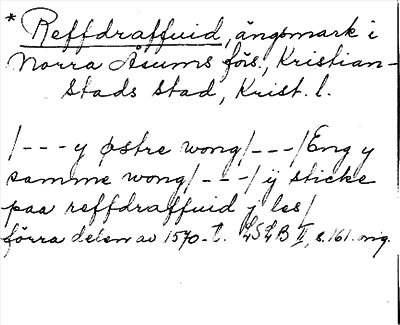 * Reffdraffuid, ängsmark i
Norra Åsums förs., Kristian-
stads stad, Krist. l.
/---y østre wong/---/Eng y
samme wong/---/ ij sticke
paa reffdraffuid y les/
förra delen av 1570-t. LSLB II, s. 161. orig.